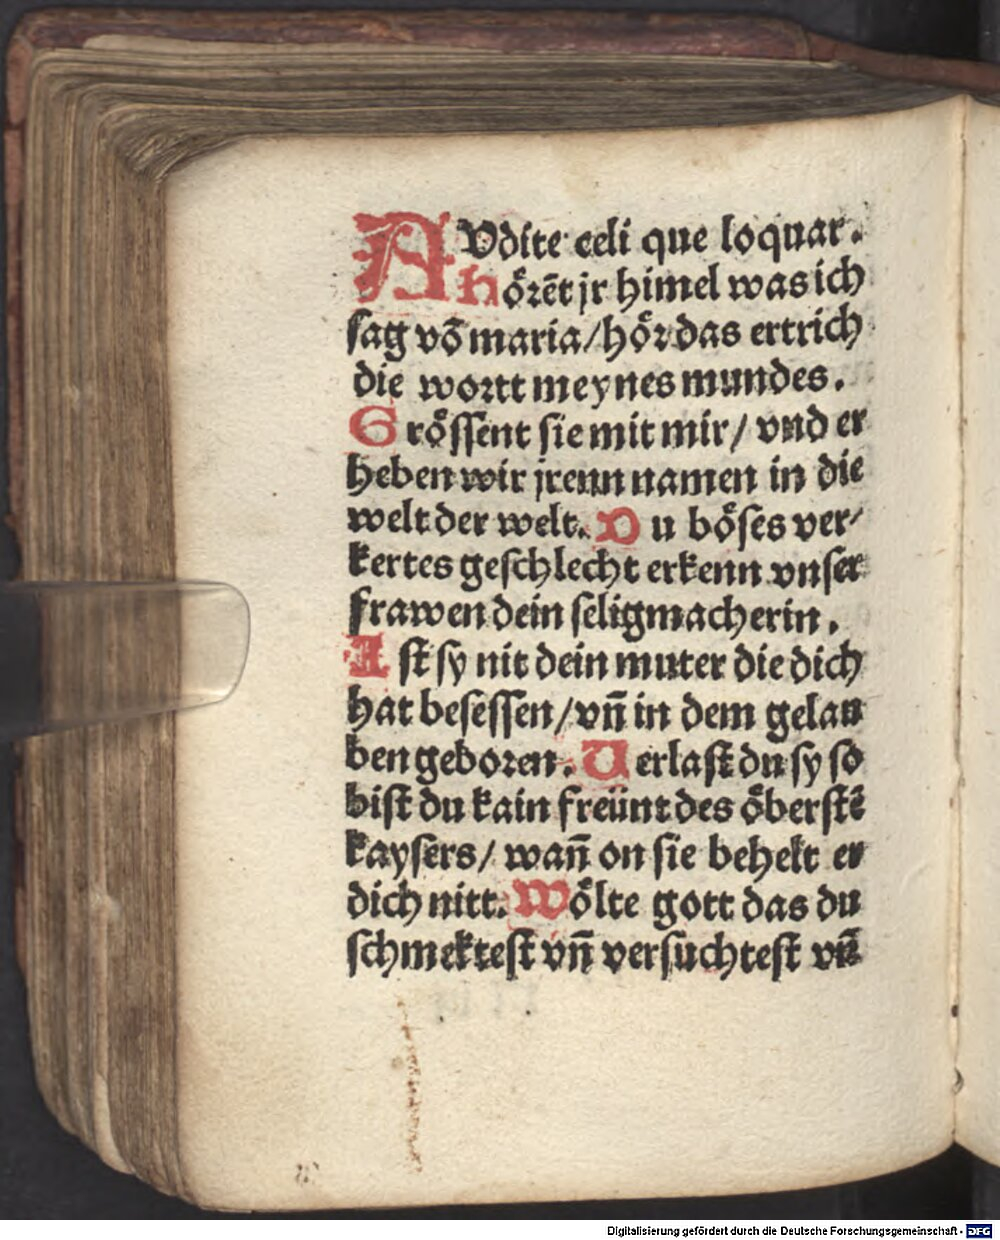 AVdite celi que loquar.
hoͤrēt jr himel was ich
ſag võ maria/hoͤr das ertrich
die wortt meynes mundes.
Groͤſſent ſie mit mir/ vnd er
heben wir jrenn namen in die
welt der welt. Du boͤſes ver⸗
kertes geſchlecht erkenn vnſer
frawen dein ſeligmacherin.
Iſt ſy nit dein muter die dich
hat beſeſſen/vñ in dem gelau
ben geboren. Verlaſt du ſy ſo
biſt du kain freünt des oͤberſtē
kayſers/ wañ on ſie behelt er
dich nitt. Woͤlte gott das du
ſchmekteſt vñ verſuchteſt vñ
Digitalisierung gefördert durch die Deutsche Forschungsgemeinschaft - DFG